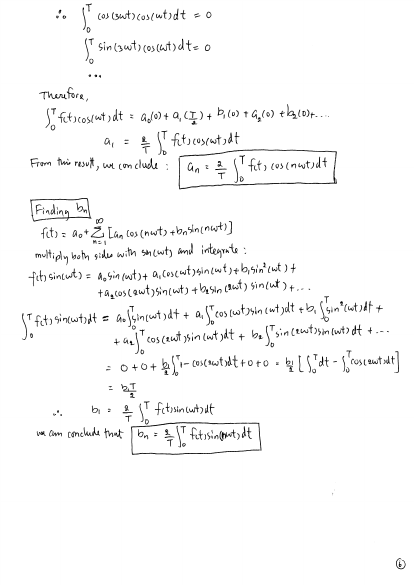 ∴ ∫₀ᵀ cos(3ωt)cos(ωt)dt = 0
∫₀ᵀ sin(3ωt)cos(ωt)dt = 0
...
Therefore,
∫₀ᵀ f(t)cos(ωt)dt = a₀(0) + a₁(T/2) + b₁(0) + a₂(0) + b₂(0) + ....
a₁ = 2/T ∫₀ᵀ f(t)cos(ωt)dt
From this result, we conclude : aₙ = 2/T ∫₀ᵀ f(t)cos(nωt)dt
Finding bₙ
f(t) = a₀ + ∑ₙ₌₁^∞ [aₙ cos(nωt) + bₙ sin(nωt)]
multiply both sides with sin(ωt) and integrate :
f(t)sin(ωt) = a₀sin(ωt) + a₁cos(ωt)sin(ωt) + b₁sin²(ωt) +
+ a₂cos(2ωt)sin(ωt) + b₂sin(2ωt)sin(ωt) + ...
∫₀ᵀ f(t)sin(ωt)dt = a₀∫₀ᵀ sin(ωt)dt + a₁∫₀ᵀ cos(ωt)sin(ωt)dt + b₁∫₀ᵀ sin²(ωt)dt +
+ a₂∫₀ᵀ cos(2ωt)sin(ωt)dt + b₂∫₀ᵀ sin(2ωt)sin(ωt)dt + ...
= 0 + 0 + b₁/2 ∫₀ᵀ 1 - cos(2ωt)dt + 0 + 0 = b₁/2 [∫₀ᵀ dt - ∫₀ᵀ cos(2ωt)dt]
= b₁T/2
∴ b₁ = 2/T ∫₀ᵀ f(t)sin(ωt)dt
we can conclude that bₙ = 2/T ∫₀ᵀ f(t)sin(nωt)dt
⑥